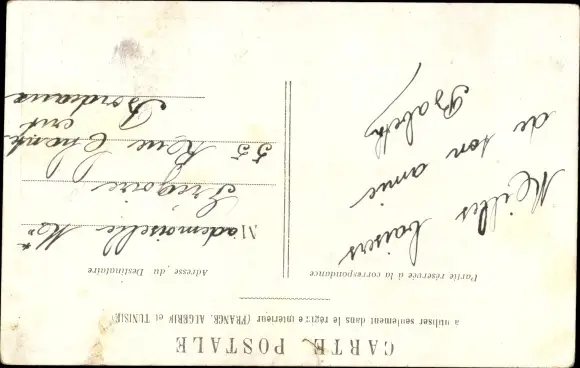 CARTE POSTALE
à utiliser seulement dans le régime intérieur (FRANCE, ALGERIE et TUNISIE)
Partie réservée à la correspondance
Meilles baisers
de ton amie
Babeth
Adresse du Destinataire
Mademoiselle
Grégoire
55 Rue
Bordeaux